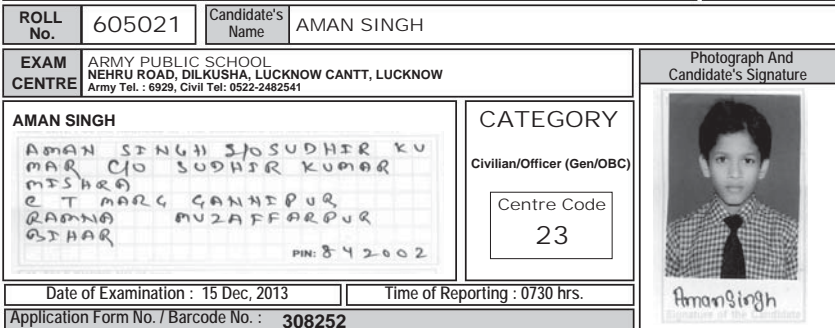 ROLL No. 605021 Candidate's Name AMAN SINGH
EXAM CENTRE ARMY PUBLIC SCHOOL
NEHRU ROAD, DILKUSHA, LUCKNOW CANTT, LUCKNOW
Army Tel. : 6929, Civil Tel: 0522-2482541
Photograph And
Candidate's Signature
AMAN SINGH
AMAN SINGH S/O SUDHIR KU
MAR C/O SUDHIR KUMAR
MISHRA
C T MARG GANNIPUR
RAMNA MUZAFFARPUR
BIHAR
PIN: 842002
CATEGORY
Civilian/Officer (Gen/OBC)
Centre Code
23
AmanSingh
Signature of the Candidate
Date of Examination : 15 Dec, 2013 Time of Reporting : 0730 hrs.
Application Form No. / Barcode No. : 308252